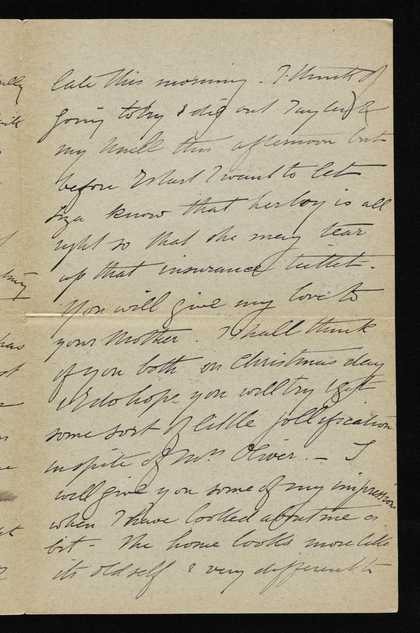 late this morning. I think of
going to try & dig out Taylor &
my Uncle this afternoon but
before I start I want to let
Liza know that her boy is all
right so that she may tear
up that insurance ticket.
You will give my love to
your Mother. I shall think
of you both on Christmas day
& I do hope you will try & get
some sort of little jollification
in spite of Mrs Oliver. — I
will give you some of my impression
when I have looked about me a
bit - The home looks more like
its old self & very different to